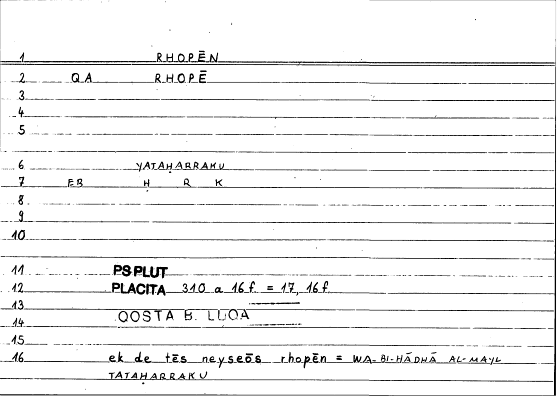 1 RHOPĒN
2 QA RHOPĒ
3
4
5
6 YATAḤARRAKU
7 EB Ḥ R K
8
9
10
11 PSPLUT
12 PLACITA 310 a 16 f = 17, 16 f
13
14 QOSTA B. LUQA
15
16 ek de tēs neyseōs rhopēn = WA-BI-HĀDHĀ AL-MAYL
TATAḤARRAKU